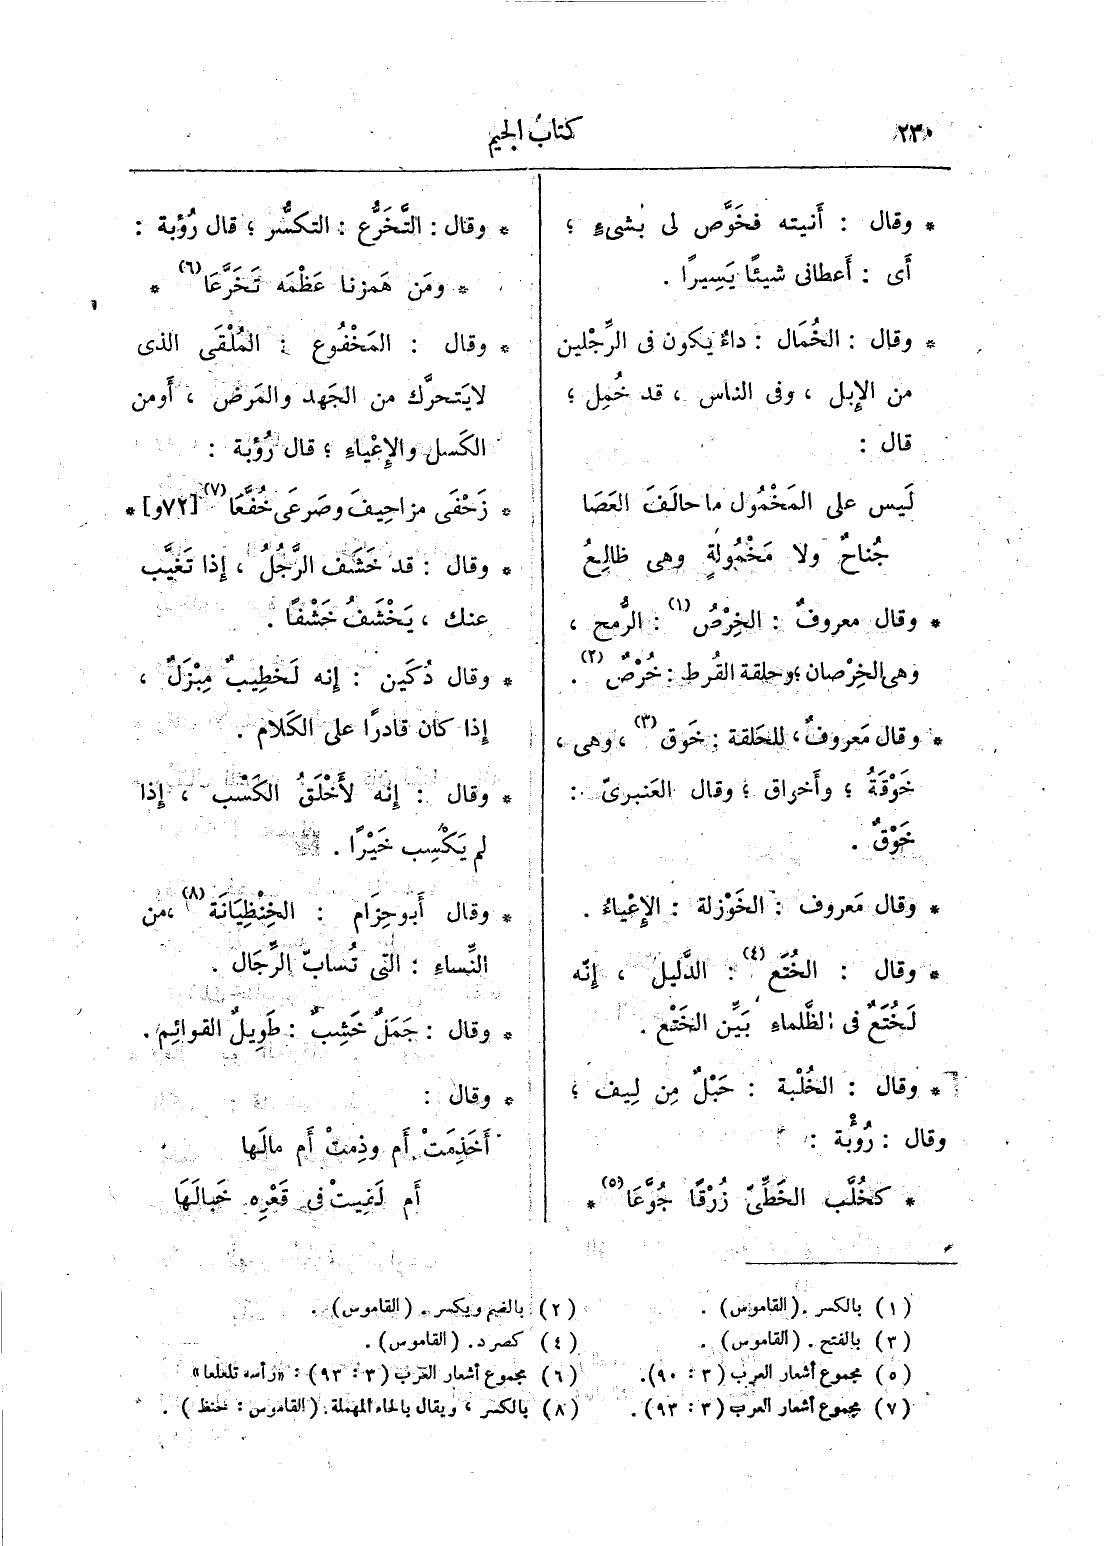 ٢٣٠
كتابُ الجيم
* وقال : أَتيته فخَوَّص لى بْشىءٍ ؛
أَى : أَعطانى شيئًا يَسِيرًا .
* وقال : الخُمَال : داءٌ يكون فى الرِّجْلين
من الإِبل ، وفى الناس ، قد خُمِل ؛
قال :
لَيس على المَخْمُول ما حالَفَ العَصَا
جُناحٌ ولا مَخْمُولةٍ وهى ظالِعُ
* وقال معروفٌ : الخِرْصُ (١) : الرُّمح ،
وهى الخِرْصان ؛ وحلقة القُرط : خُرْصٌ (٢) .
* وقال مَعروفٌ ، للحَلقة : خَوق (٣) ، وهى ،
خَوْقَةُ ؛ وأَخراق ؛ وقال العَنبرىّ :
خَوْقٌ .
* وقال مَعروف : الخَوْزلة : الإِعْياءُ .
* وقال : الخُتَع (٤) : الدَّليل ، إِنّه
لَخُتَعٌ فى الظَّلماءِ بَيِّن الخَتْع .
* وقال : الخُلْبة : حَبْلٌ مِن لِيف ؛
وقال : رُؤْبة :
* كخُلَّب الخَطِّىّ زُرْقًا جُوَّعَا (٥) *
* وقال : التَّخَرُّع : التكسُّر ؛ قال رُؤبة :
* ومَن هَمزنا عَظْمَه تَخَرَّعَا (٦) *
* وقال : المَخْفُوع : المُلْقَى الذى
لايَتحرَّك من الجَهد والمَرض ، أَومن
الكَسل والإِعْياءِ ؛ قال رُؤبة :
* زَحْفَى مزاحِيفَ وصَرعَى خُفَّعَا (٧) [٧٢و] *
* وقال : قد خَشَف الرَّجُلُ ، إِذا تَغَيَّب
عنك ، يَخْشَفُ خَشْفًا .
* وقال دُكَين : إِنه لَخطِيبٌ مِبْزَلٌ ،
إِذا كان قادرًا على الكَلام .
* وقال : إِنّه لأَخْلَقُ الكَسْب ، إِذا
لم يَكْسِب خَيْرًا .
* وقال أَبوحِزَام : الخِنْظِيَانَة (٨) ، من
النِّساءِ : التى تُسابّ الرِّجَال .
* وقال : جَمَلٌ خَشِبٌ : طَوِيلٌ القوائِم .
* وقال :
أَخَذِمَتْ أَم وذِمتْ أَم مالَها
أَم لَقِيتْ فى قَعْرِه خَبالَهَا
(١) بالكسر . (القاموس) .
(٢) بالضم ويكسر . (القاموس) .
(٣) بالفتح . (القاموس) .
(٤) كصرد. (القاموس) .
(٥) مجموع أشعار العرب (٣ : ٩٠).
(٦) مجموع أشعار العرب (٣ : ٩٣) : «رأسه تلعلعا»
(٧) مجموع أشعار العرب (٣ : ٩٣) .
(٨) بالكسر ، ويقال بالحاء المهملة. (القاموس : خنظ) .